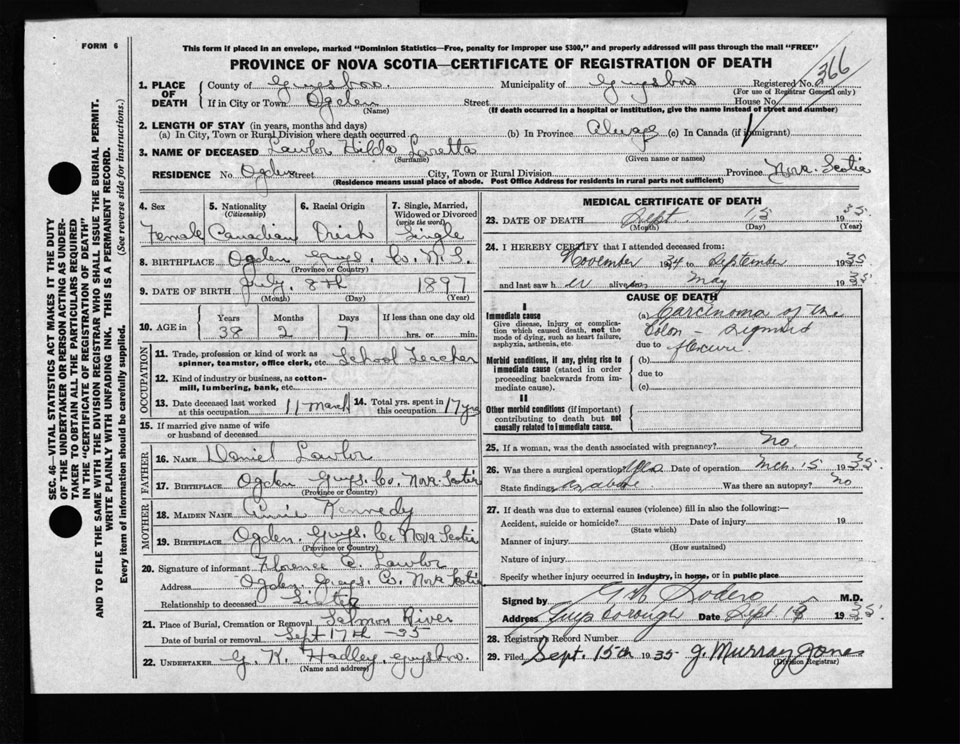 FORM 6
This form if placed in an envelope, marked "Dominion Statistics—Free, penalty for improper use $300," and properly addressed will pass through the mail "FREE"
PROVINCE OF NOVA SCOTIA—CERTIFICATE OF REGISTRATION OF DEATH
366
1. PLACE OF DEATH County of Guysboro. Municipality of Guysboro Registered No.
(For use of Registrar General only)
If in City or Town Ogden Street House No.
(Name) (If death occurred in a hospital or institution, give the name instead of street and number)
2. LENGTH OF STAY (in years, months and days)
(a) In City, Town or Rural Division where death occurred (b) In Province Always (c) In Canada (if immigrant)
3. NAME OF DECEASED Lawlor Hilda Loretta
(Surname) (Given name or names)
RESIDENCE No. Ogden Street City, Town or Rural Division Province Nova Scotia
(Residence means usual place of abode. Post Office Address for residents in rural parts not sufficient)
SEC. 46—VITAL STATISTICS ACT MAKES IT THE DUTY
OF THE UNDERTAKER OR PERSON ACTING AS UNDER-
TAKER TO OBTAIN ALL THE PARTICULARS REQUIRED
IN THE "CERTIFICATE OF REGISTRATION OF DEATH"
AND TO FILE THE SAME WITH THE DIVISION REGISTRAR WHO SHALL ISSUE THE BURIAL PERMIT.
WRITE PLAINLY WITH UNFADING INK. THIS IS A PERMANENT RECORD.
Every item of information should be carefully supplied. (See reverse side for instructions.)
4. Sex 5. Nationality (Citizenship) 6. Racial Origin 7. Single, Married, Widowed or Divorced (write the word)
Female Canadian Irish Single
8. BIRTHPLACE Ogden Guys. Co. N.S.
(Province or Country)
9. DATE OF BIRTH July. 8th 1897
(Month) (Day) (Year)
10. AGE in Years Months Days If less than one day old
38 2 7 hrs. or min.
OCCUPATION
11. Trade, profession or kind of work as spinner, teamster, office clerk, etc. School Teacher
12. Kind of industry or business, as cotton-mill, lumbering, bank, etc.
13. Date deceased last worked at this occupation 11 March 14. Total yrs. spent in this occupation 17 yrs
15. If married give name of wife or husband of deceased
FATHER
16. NAME Daniel Lawlor
17. BIRTHPLACE Ogden Guys. Co. Nova Scotia
(Province or Country)
MOTHER
18. MAIDEN NAME Annie Kennedy
19. BIRTHPLACE Ogden. Guys. Co Nova Scotia
(Province or Country)
20. Signature of informant Florence C. Lawlor
Address Ogden, Guys. Co. Nova Scotia
Relationship to deceased Sister
21. Place of Burial, Cremation or Removal Salmon River
Date of burial or removal Sept 17th -35
22. UNDERTAKER G. K. Hadley, Guysboro.
(Name and address)
MEDICAL CERTIFICATE OF DEATH
23. DATE OF DEATH Sept. 15 1935
(Month) (Day) (Year)
24. I HEREBY CERTIFY that I attended deceased from:
November 1934 to September 1935
and last saw her alive on May 1935
CAUSE OF DEATH
I
Immediate cause
Give disease, injury or complication which caused death, not the mode of dying, such as heart failure, asphyxia, asthenia, etc.
(a) Carcinoma of the
Colon - sigmoid
due to flexure
Morbid conditions, if any, giving rise to immediate cause (stated in order proceeding backwards from immediate cause).
(b)
due to
(c)
II
Other morbid conditions (if important) contributing to death but not causally related to immediate cause.
25. If a woman, was the death associated with pregnancy? No.
26. Was there a surgical operation? Yes. Date of operation Mch. 15 1935
State findings as above Was there an autopsy? No
27. If death was due to external causes (violence) fill in also the following:—
Accident, suicide or homicide? Date of injury 19
(State which)
Manner of injury
(How sustained)
Nature of injury
Specify whether injury occurred in industry, in home, or in public place
Signed by G W Sodero M.D.
Address Guysborough Date Sept 18 1935
28. Registrar's Record Number
29. Filed Sept. 15th 1935 J. Murray Jones
(Division Registrar)